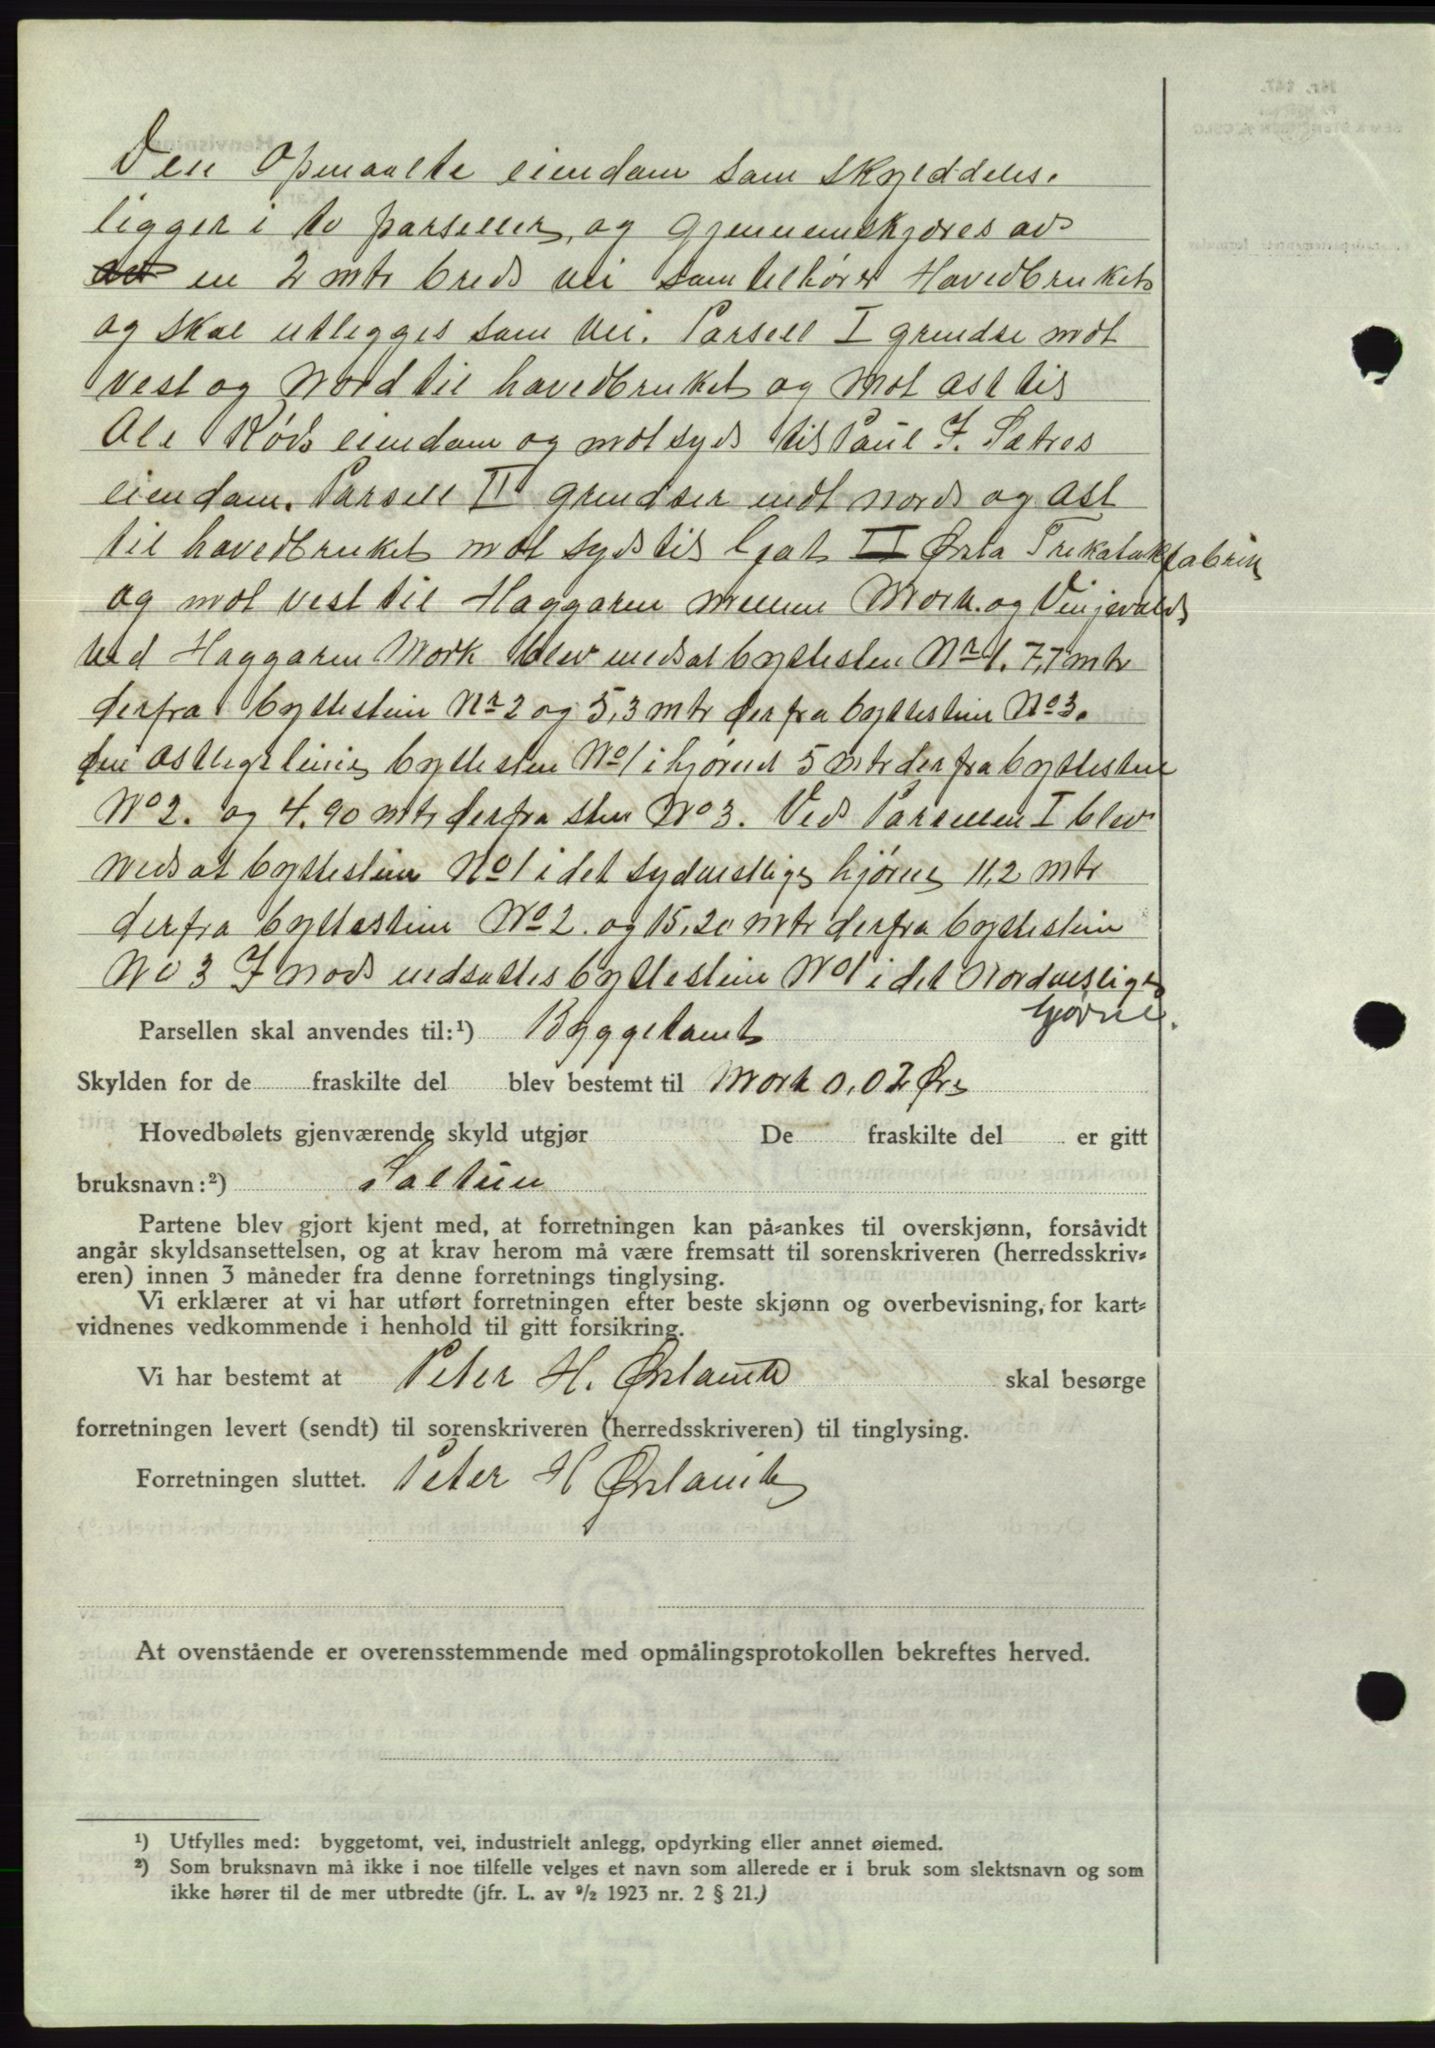 Den Opmaalte eiendom som skylddeles.
ligger i to parseller, og gjennemskjæres av
en 2 mtr bred vei som tilhører Hovedbruket
og skal utlegges som vei. Parsell I grendse mot
vest og Nord til hovedbruket og mot øst til
Ole eiendom og mot syd til Paul J. Sætres
eiendom. Parsell II grendser mot nord og øst
til hovedbruket mot syd til II Ørsta Trikotakfabrik
og mot vest til Haggaren mellem Mork og Vinjevolds
ved Haggaren Mork blev nedsat byttesten Nr 1. 7,7 mtr
derfra byttestein Nr 2 og 5,3 mtr derfra byttestein No 3.
den østlige linie byttesten No 1 i hjørnet 5 mtr derfra byttestein
No 2. og 4.90 mtr derfra sten No 3. Ved Parsellen I blev
nedsat byttestein No 1 i det sydvestlige hjørne 11,2 mtr
derfra byttestein No 2. og 15,20 mtr derfra byttestein
No 3 I nord nedsattes byttestein No 1 i det Nordvestlige
hjørne.
Parsellen skal anvendes til:¹) Byggetomt
Skylden for de fraskilte del blev bestemt til Mork 0,02 Øre
Hovedbølets gjenværende skyld utgjør De fraskilte del er gitt
bruksnavn:²) Soltun
Partene blev gjort kjent med, at forretningen kan på-ankes til overskjønn, forsåvidt
angår skyldsansettelsen, og at krav herom må være fremsatt til sorenskriveren (herredsskriv-
eren) innen 3 måneder fra denne forretnings tinglysing.
Vi erklærer at vi har utført forretningen efter beste skjønn og overbevisning, for kart-
vidnenes vedkommende i henhold til gitt forsikring.
Vi har bestemt at Peter H. Ørstavik skal besørge
forretningen levert (sendt) til sorenskriveren (herredsskriveren) til tinglysing.
Forretningen sluttet. Peter H Ørstavik
At ovenstående er overensstemmende med opmålingsprotokollen bekreftes herved.
¹) Utfylles med: byggetomt, vei, industrielt anlegg, opdyrking eller annet øiemed.
²) Som bruksnavn må ikke i noe tilfelle velges et navn som allerede er i bruk som slektsnavn og som
ikke hører til de mer utbredte (jfr. L. av ⁹/₂ 1923 nr. 2 § 21.)